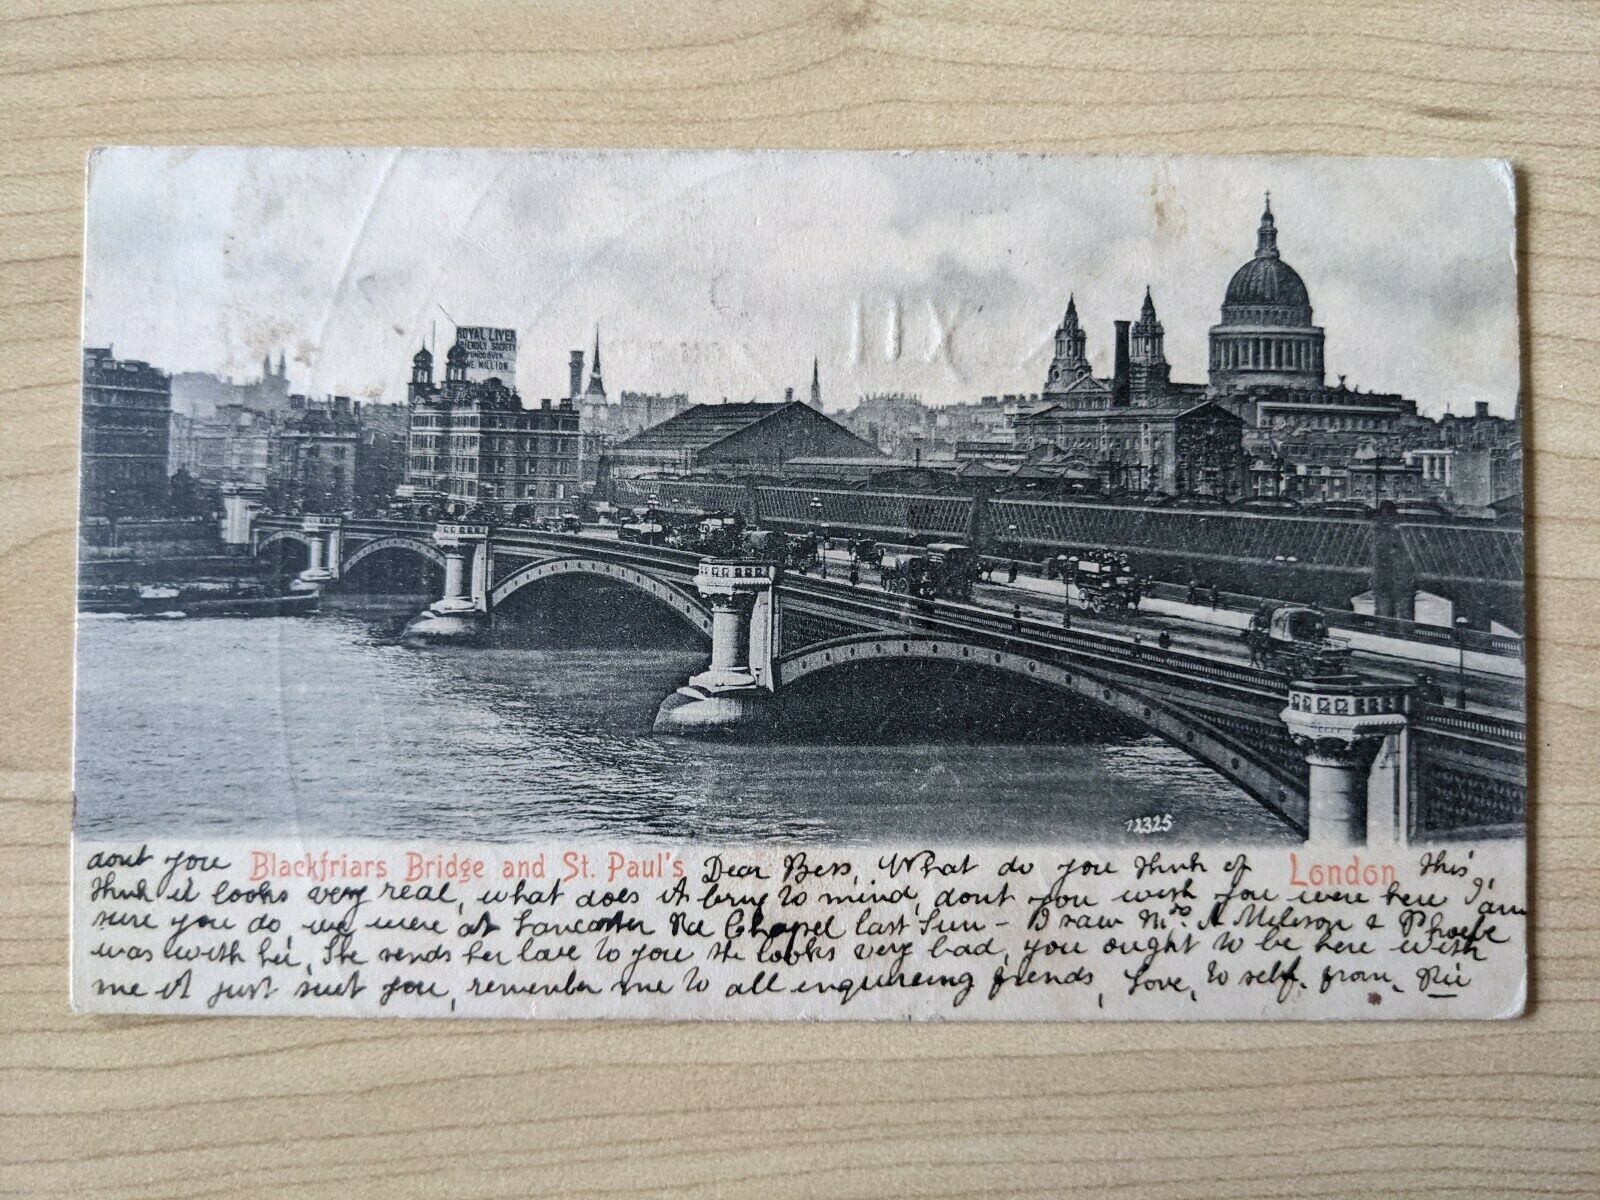 ROYAL LIVER
FRIENDLY SOCIETY
FUNDS OVER
ONE MILLION
12325
dont you Blackfriars Bridge and St. Paul's Dear Bess, What do you think of London this,
think it looks very real, what does it bring to mind, dont you wish you were here I am
sure you do we were at Lancaster Rd Chapel last Sun - D saw Mrs A & Phoebe
was with her, She sends her love to you she looks very bad, you ought to be here with
me it just suit you, remember me to all enquireing friends, Love, to self. from,